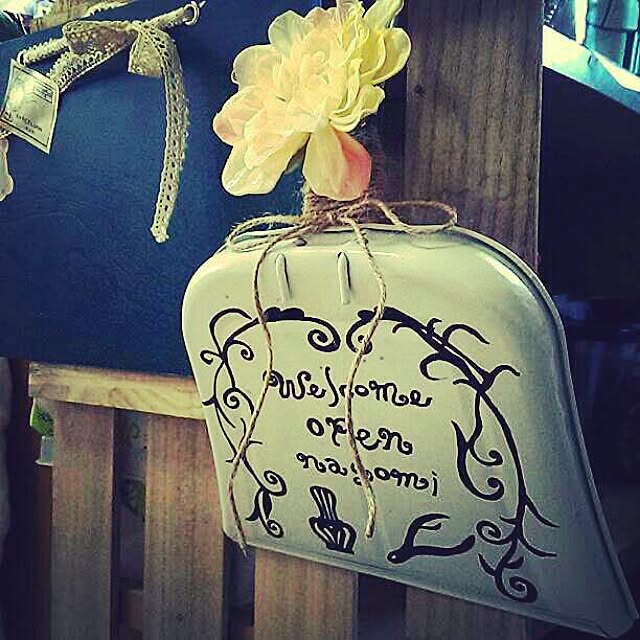 Welcome
open
nagomi